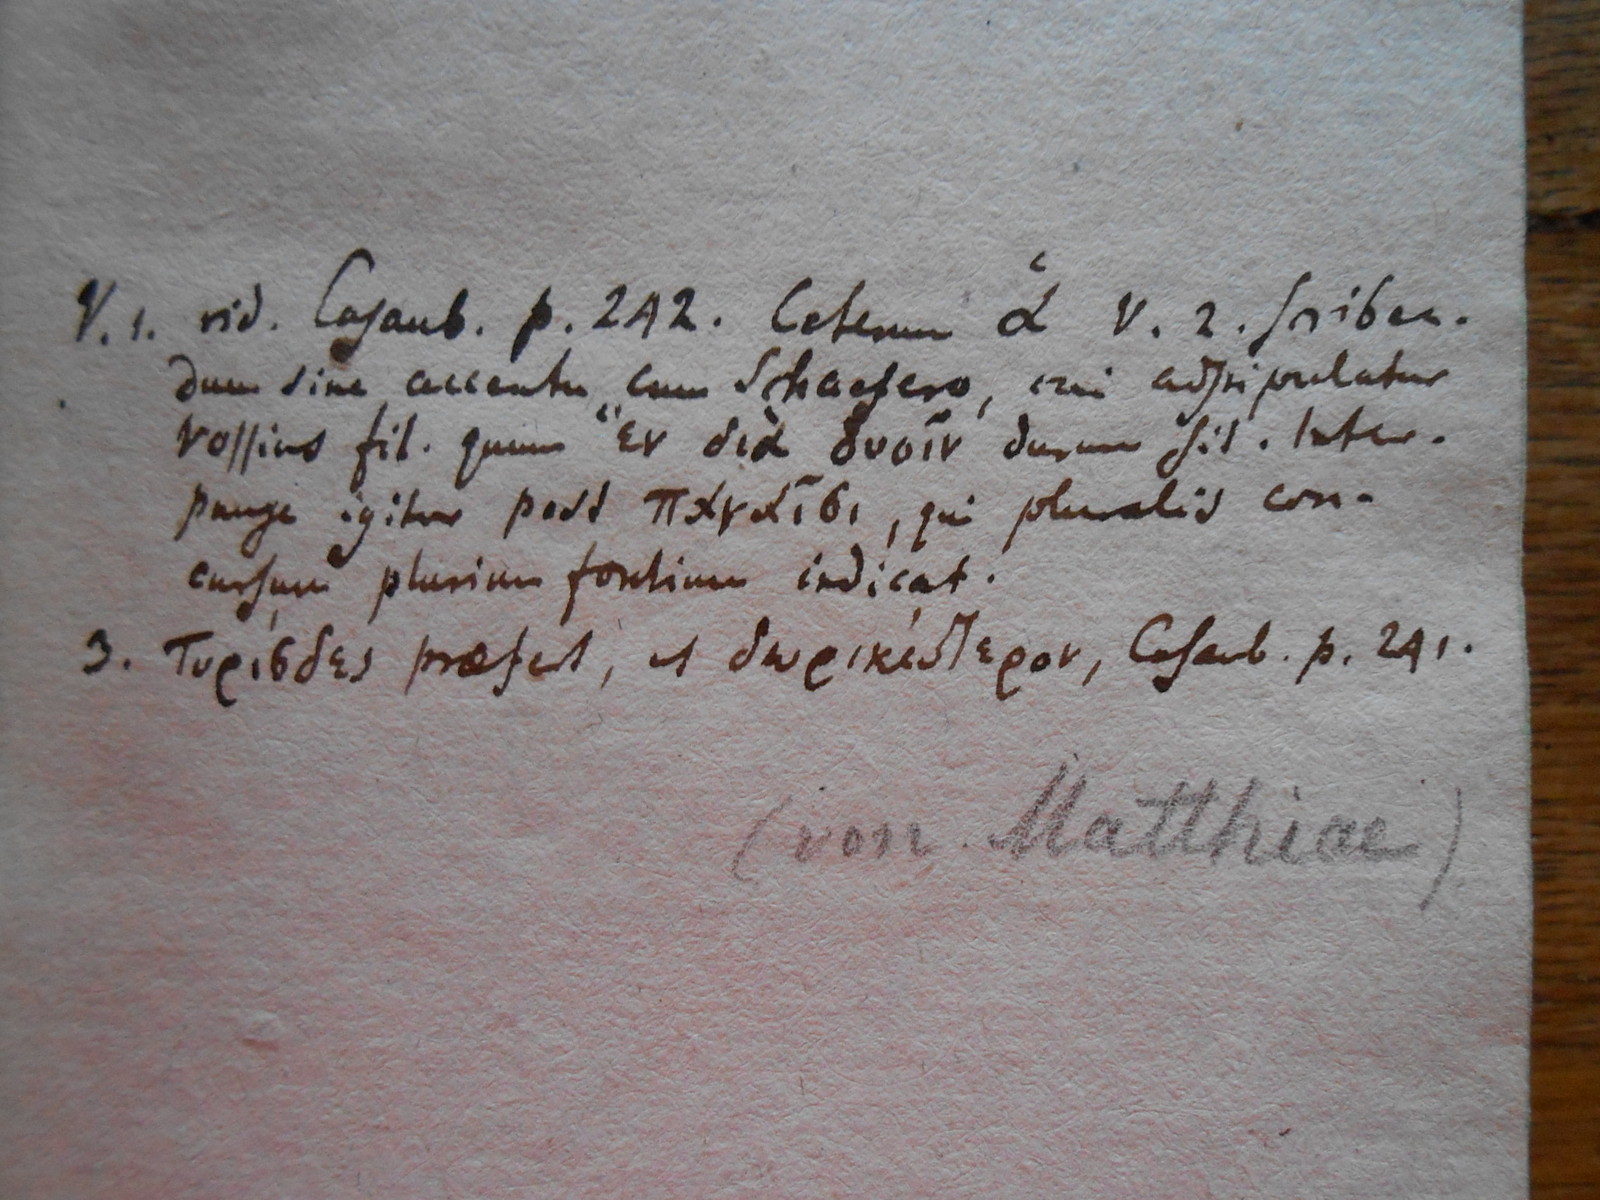 V. 1. vid. Casaub. p. 242. Ceterum ἁ V. 2. scriben-
dum sine accentu cum Schaefero, cui adstipulatur
Vossius fil. quum ἓν διὰ δυοῖν durum sit. Inter-
punge igitur post παγαῖσι, qui pluralis con-
cursum plurium fontium indicat.
3. Τυρίσδες praefert, ut δωρικώτερον, Casaub. p. 241.
(von Matthiae)